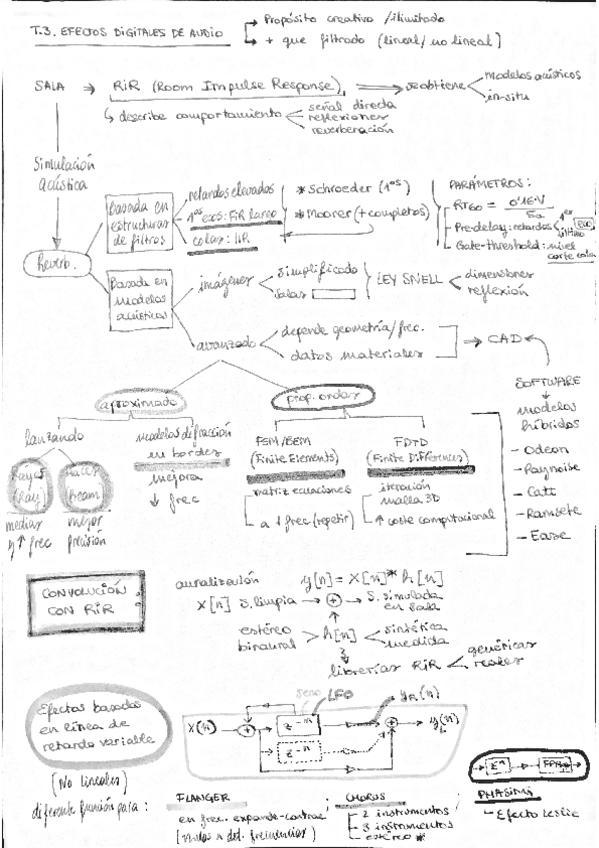 T.3. EFECTOS DIGITALES DE AUDIO
Propósito creativo / ilimitado
+ que filtrado (lineal / no lineal)
SALA → RiR (Room Impulse Response) ⇒ se obtiene
modelos acústicos
in-situ
describe comportamiento
señal directa
reflexiones
reverberación
Simulación
acústica
Reverb.
Basada en
estructuras
de filtros
retardos elevados
1os ecos: FiR largo
colas: IIR
* Schroeder (1os)
* Moorer (+ completos)
PARÁMETROS:
RT60 = 0'16·V
Pre-delay: retardos
Gate-threshold: nivel
corte cola
Basada en
modelos
acústicos
imágenes
simplificado
salas
LEY SNELL
dimensiones
reflexión
avanzado
depende geometría/frec.
datos materiales
⇒ CAD
SOFTWARE
modelos
híbridos
- Odeon
- Raynoise
- Catt
- Ramsete
- Ease
aproximado
prop. ondas
lanzando
rayos
(ray)
medias
y ↑ frec
beam
mejor
precisión
modelos difracción
en bordes
mejora
↓ frec
FEM/BEM
(Finite Elements)
matriz ecuaciones
a ↑ frec (repetir)
FDTD
(Finite Differences)
iteración
malla 3D
↑ coste computacional
CONVOLUCIÓN
CON RiR
auralización
y[n] = x[n] * h[n]
x[n] S. limpia → + → S. simulada
en sala
estéreo
binaural
> h[n]
sintética
medida
librerías RiR
genéricas
reales
Efectos basados
en línea de
retardo variable
(No lineales)
diferente función para:
seno
LFO
x(n)
z⁻ᴹ
z⁻ᴹ
FLANGER
en frec. expande-contrae
CHORUS
2 instrumentos
3 instrumentos
estéreo *
PHASING
- Efecto Leslie